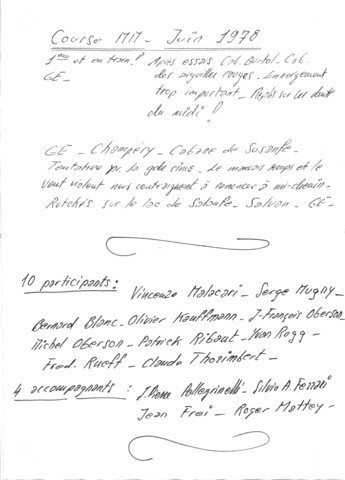 Course MM - Juin 1978
1ère et en train! Après essais Cab. Bertol - Cab.
GE - des aiguilles rouges - Enneigement
trop important - Replis sur les dents
du midi!
GE - Champéry - Cabane de Susanfe -
Tentative pr. la gde cime - Le mauvais temps et le
vent violent nous contraignent à renoncer à mi-chemin -
Retchés sur le lac de Salanfe - Salvan - GE -
10 participants: Vincenzo Malacari - Serge Mugny -
Bernard Blanc - Olivier Kauffmann - J-François Oberson
Michel Oberson - Patrick Ribaut - Yvan Rogg -
Fred. Rueff - Claude Thorimbert -
4 accompagnants: J. Pierre Pellegrinelli - Silvio A. Ferrari
Jean Frei - Roger Mattey -